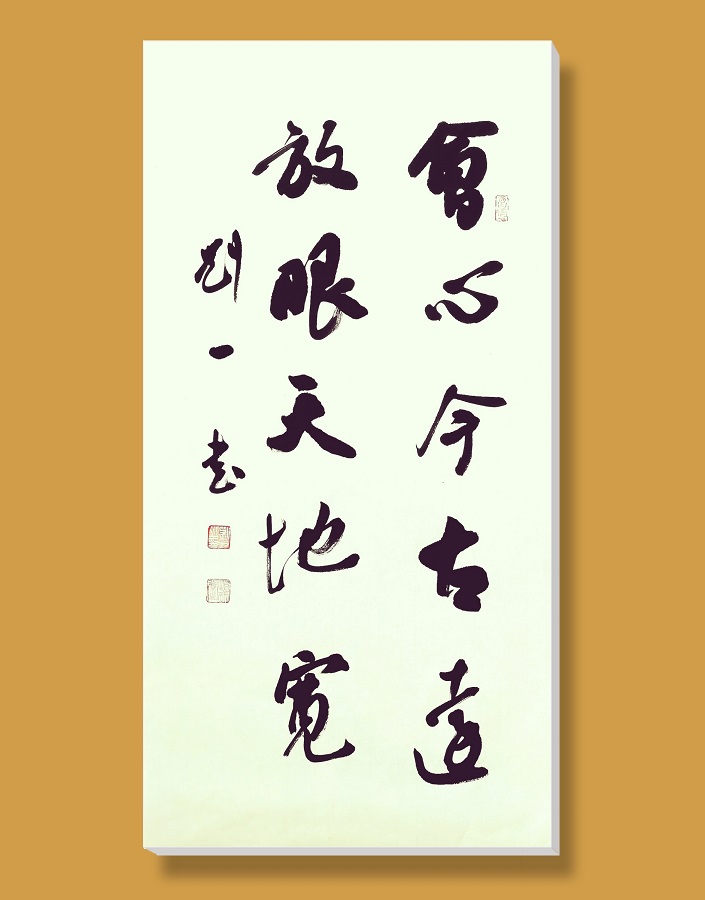 會心今古遠
放眼天地寬
劉一書